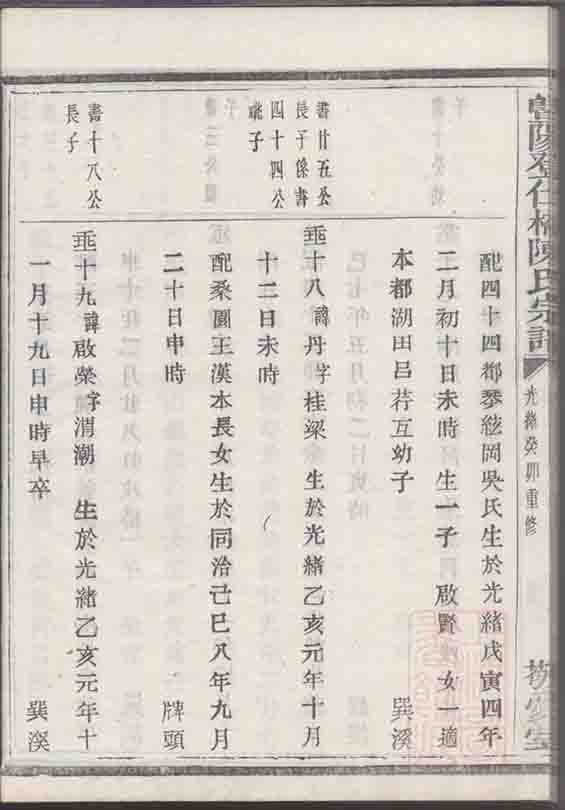 暨陽登仕橋陳氏宗譜
光緒癸卯重修
配四十四都琴絃岡吳氏生於光緒戊寅四年
二月初十日未時生一子啟賢女一適
本都湖田呂荇互幼子 巽溪
書廿五公
長子係書
四十四公
疏子
垂十八諱丹字桂梁生於光緒乙亥元年十月
十二日未時
配桑園王漢本長女生於同治己巳八年九月
二十日申時 牌頭
書十八公
長子
垂十九諱啟榮字渭潮生於光緒乙亥元年十
一月十九日申時早卒 巽溪